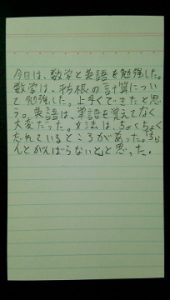 今日は、数学と英語を勉強した。
数学は、平方根の計算につい
て勉強した。上手くできたと思
う。英語は、単語を覚えてなく
大変だった。文法は、ちょくちょく
忘れているところがあった。ちゃ
んとがんばらないとと思った。